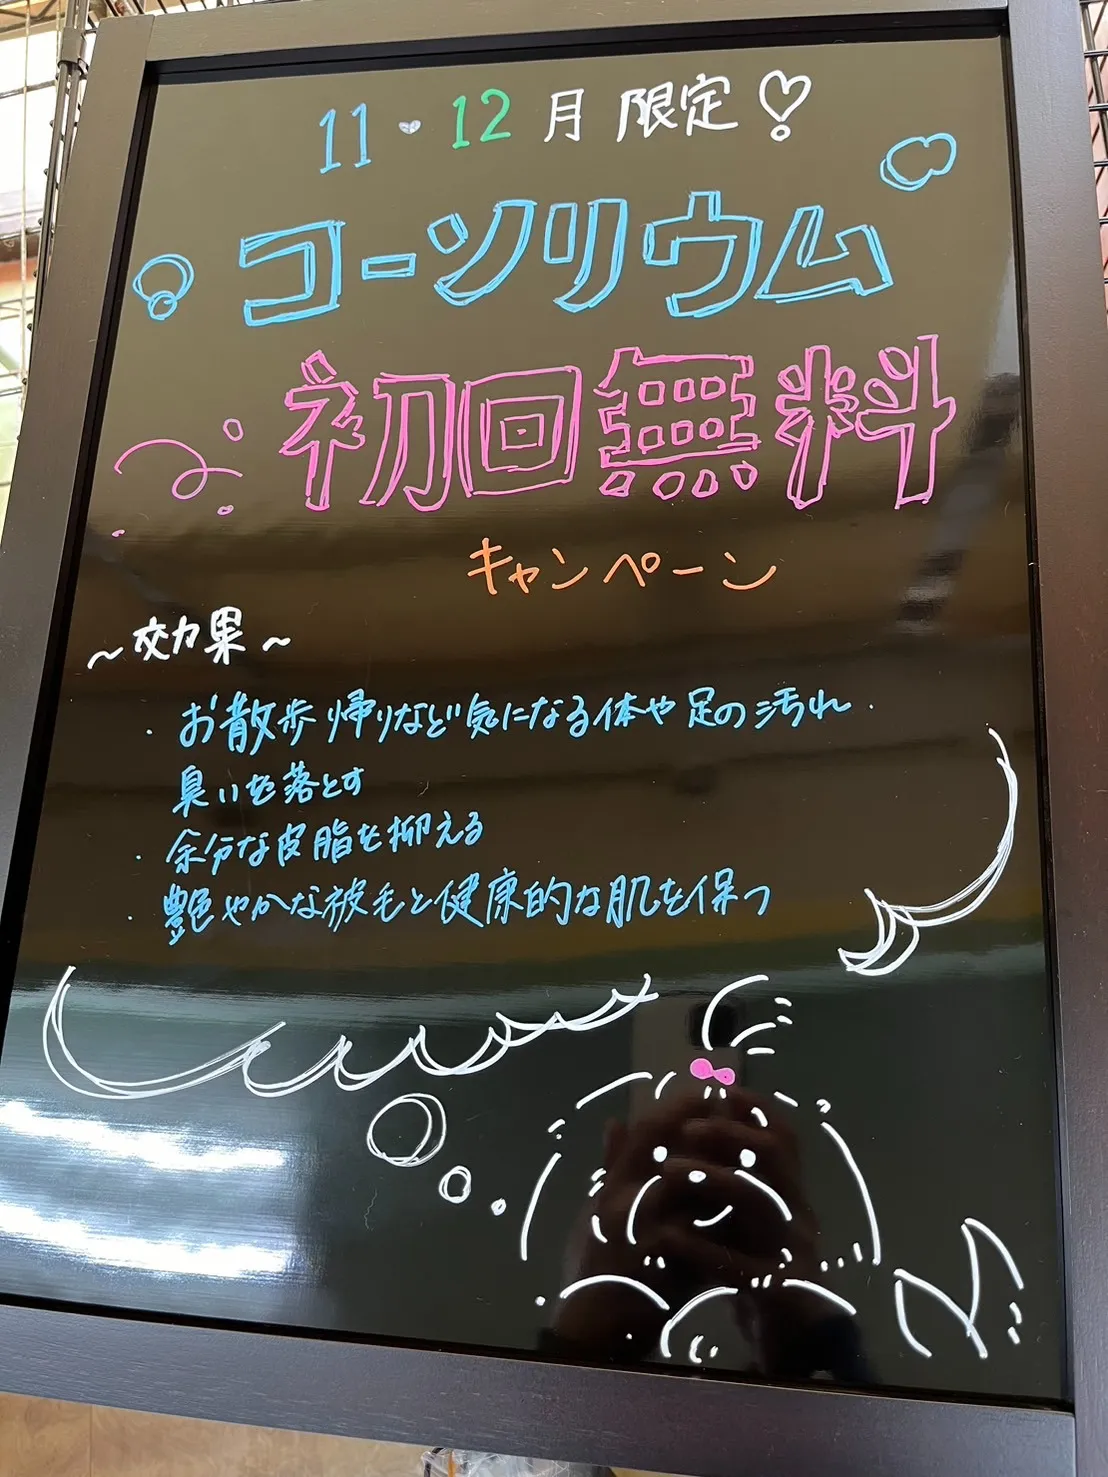 11・12月 限定♡
コーソリウム
初回無料
キャンペーン
〜効果〜
・お散歩帰りなど気になる体や足の汚れ・
臭いを落とす
・余分な皮脂を抑える
・艶やかな被毛と健康的な肌を保つ